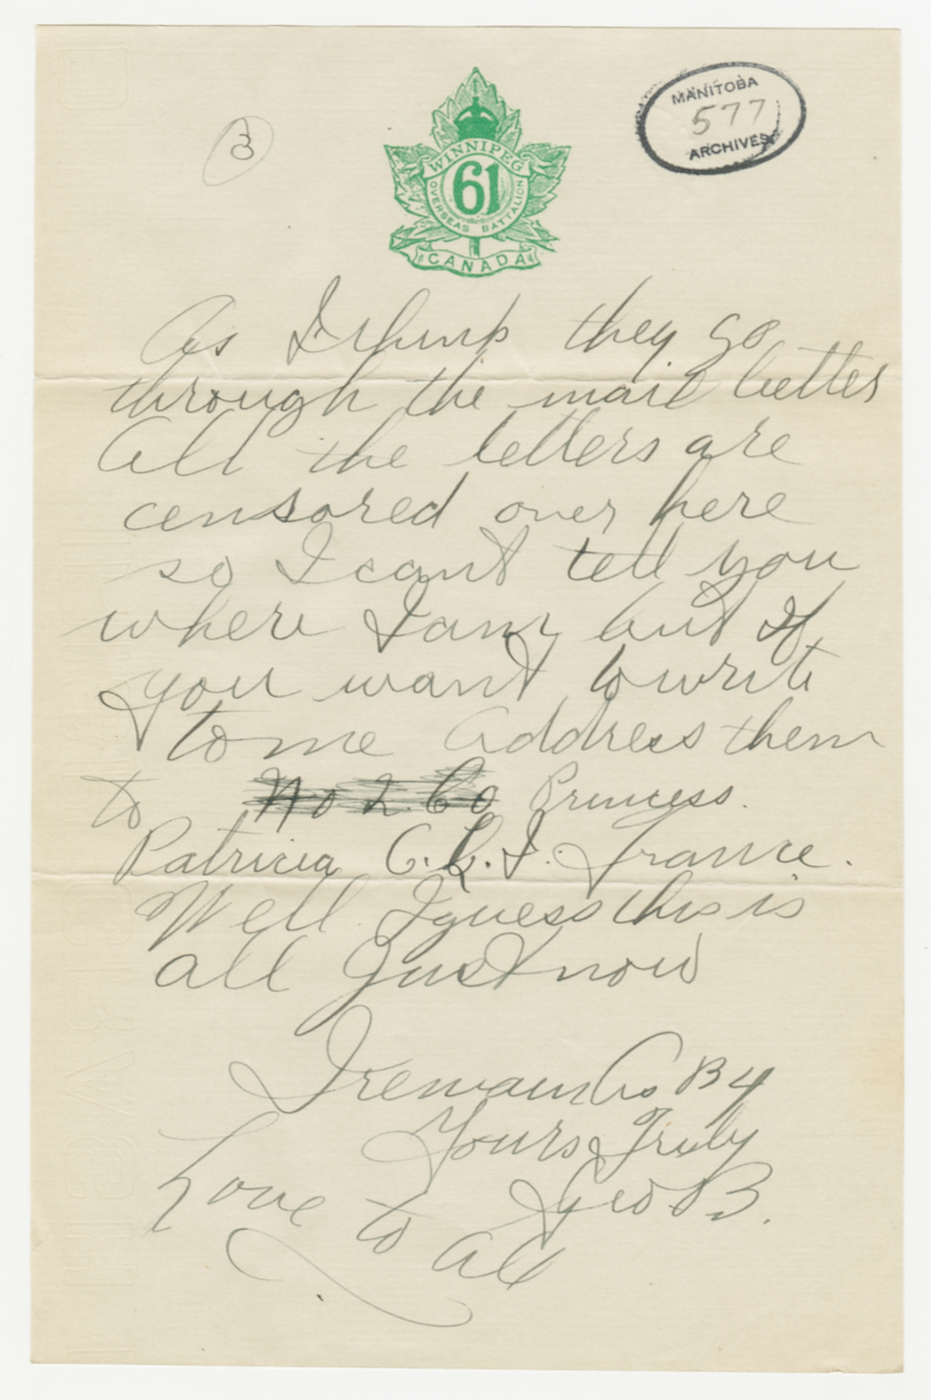 3
WINNIPEG
61
OVERSEAS BATTALION
CANADA
MANITOBA
577
ARCHIVES
As I think they go
through the mail better
All the letters are
censored over here
so I cant tell you
where I am but if
you want to write
to me Address them
to No 2 Co Princess.
Patricia C.L.I. France.
Well I guess this is
all Just now
I remain As By
Yours Truly
Geo B.
Love to
All